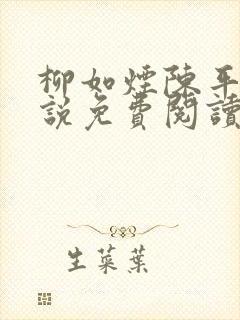 柳如煙陳平
說免費閱讀
生菜葉